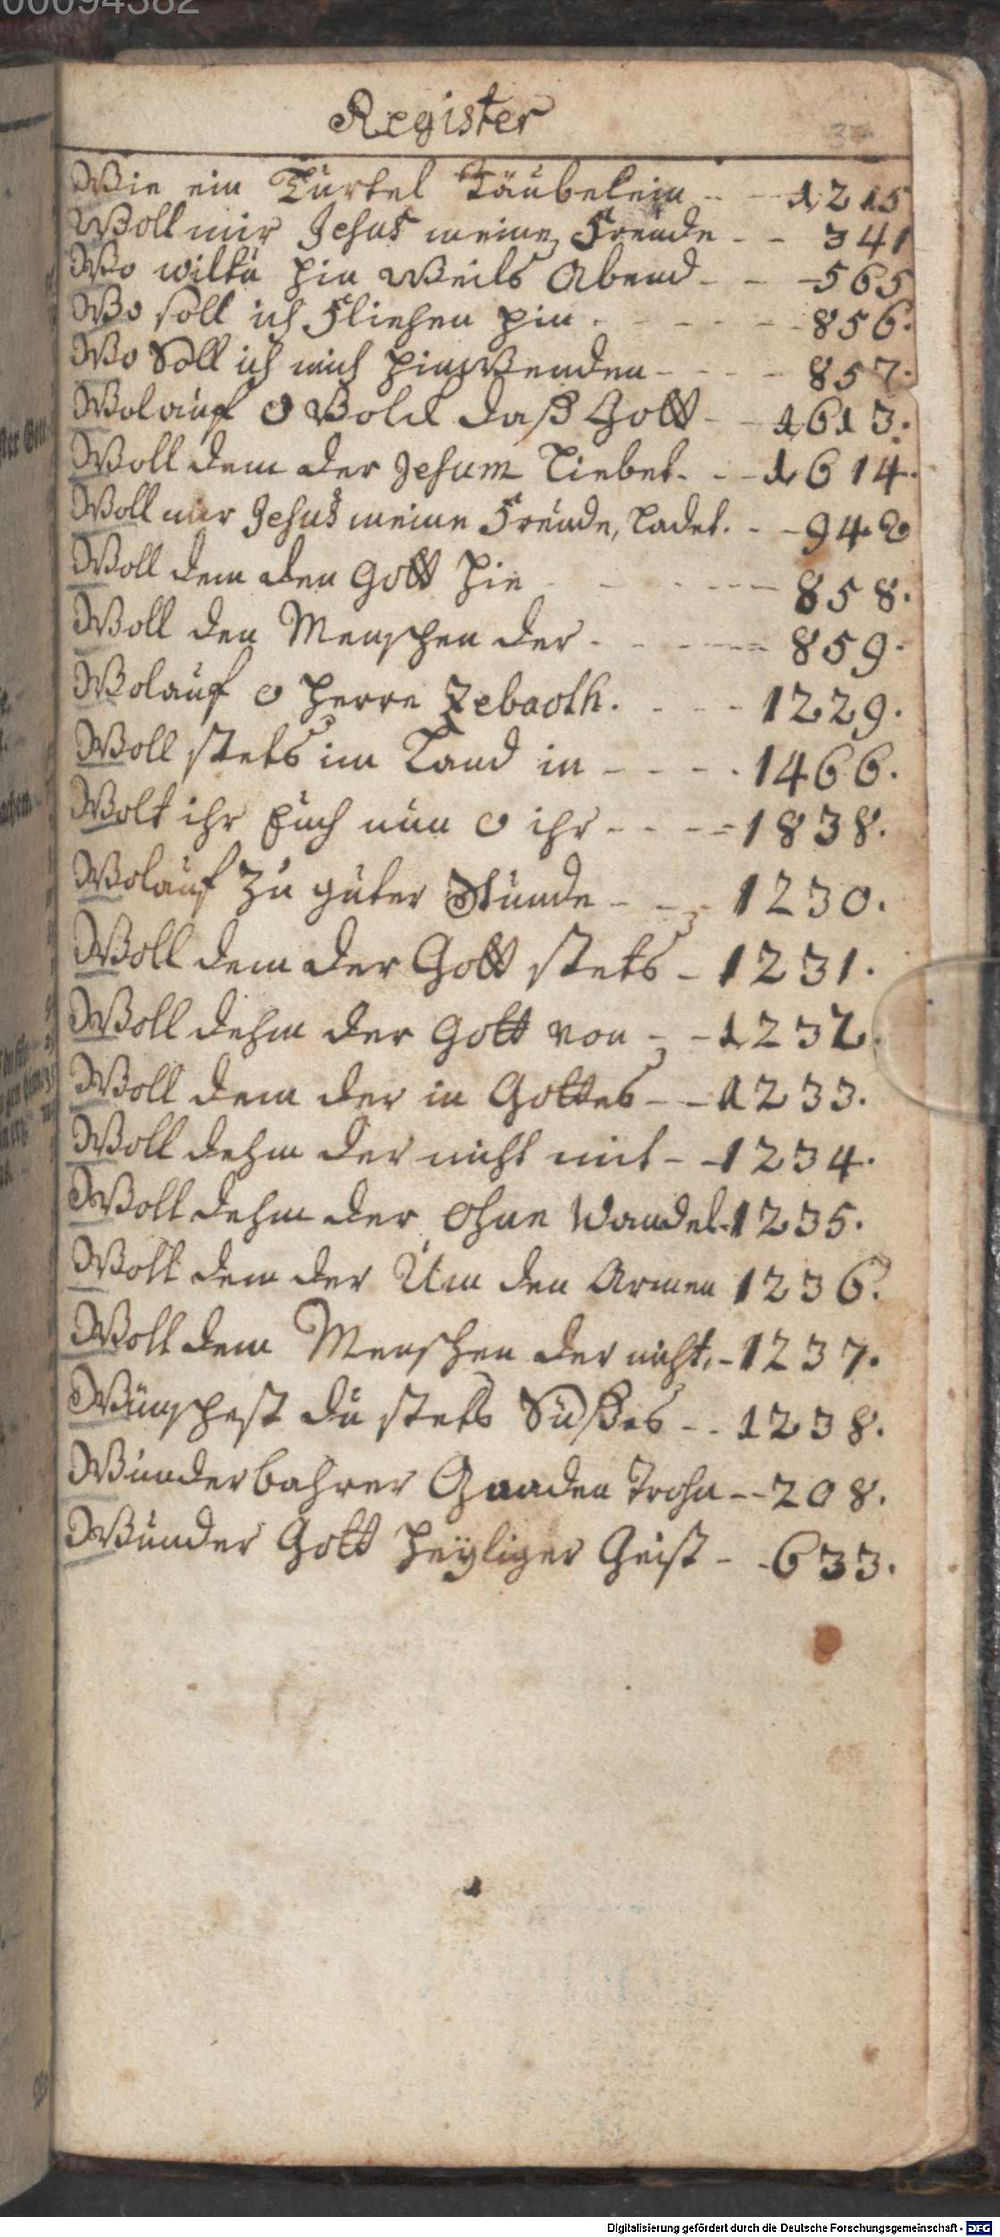 00094382
Register
Wie ein Türtel Täubelein - - - 1215
Woll mir Jesus meine Freude - - 341
Wo wiltu hin weils Abend - - - 565
Wo soll ich Fliehen hin - - - - - 856.
Wo Soll ich mich hinwenden - - - - 857.
Wolauf O Volck daß Gott - - 1613.
Woll dem der Jesum Liebet. - - 1614.
Woll mir Jesus meine Freude, Ladet. - - 942
Woll dem den Gott hie - - - - - 858.
Woll den Menschen der - - - - - 859.
Wolauf o Herre Zebaoth. - - - - 1229.
Woll stets im Land in - - - - 1466.
Wolt ihr Euch nun O ihr - - - - 1838.
Wolauf zu guter Stunde - - - 1230.
Woll dem der Gott stets - 1231.
Woll dehm der Gott von - - 1232.
Woll dem der in Gottes - - 1233.
Woll dehm der nicht mit - - 1234.
Woll dehm der ohne Wandel - 1235.
Woll dem der Um den Armen 1236.
Woll dem Menschen der nicht. - 1237.
Wünschest du stets Süßes - - 1238.
Wunderbahrer Gnaden Trohn - - 208.
Wunder Gott heyliger Geist - - 633.
Digitalisierung gefördert durch die Deutsche Forschungsgemeinschaft - DFG